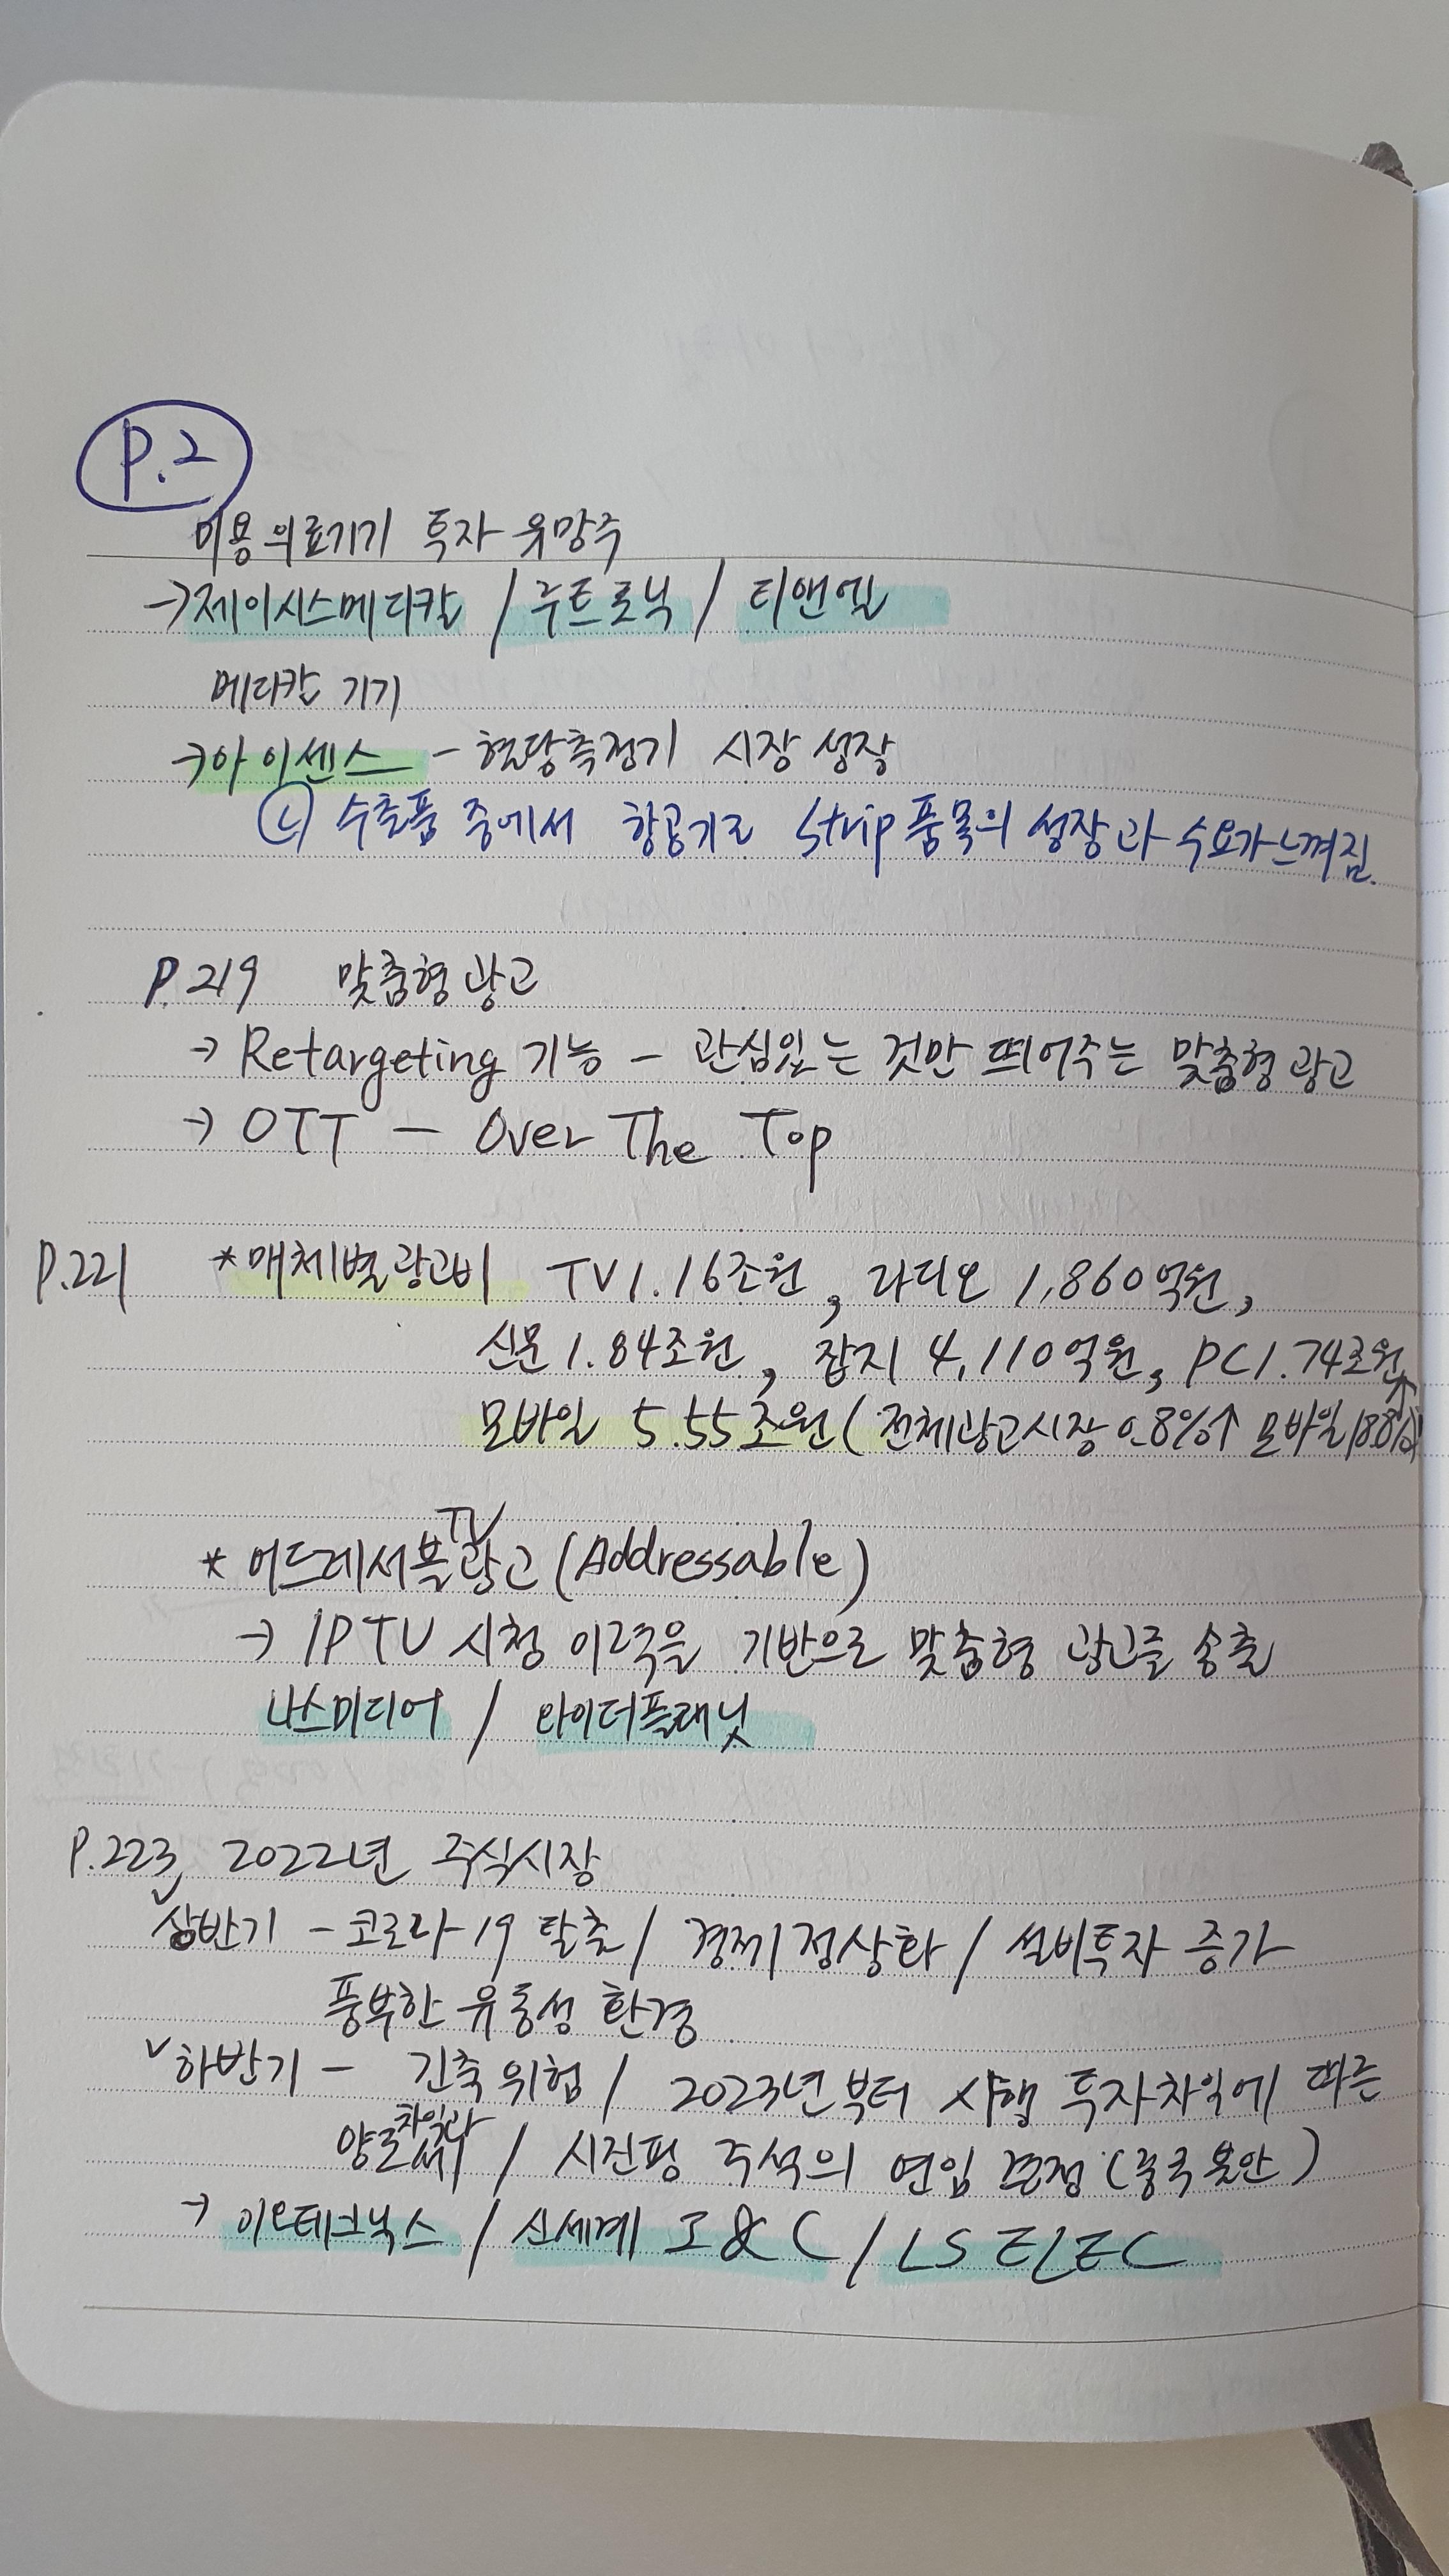 P.2
미용의료기기 투자 유망주
→제이시스메디칼 / 루트로닉 / 티앤엘
메디칼 기기
→아이센스 - 혈당측정기 시장 성장
ㄴ 수출품 중에서 항공기로 Strip품목의 성장과 수요가느껴짐.
P.219 맞춤형광고
→ Retargeting 기능 - 관심있는 것만 띄어주는 맞춤형광고
→ OTT - Over The Top
P.221 *매체별광고비 TV1.16조원, 라디오 1,860억원,
신문1.84조원, 잡지 4,110억원, PC1.74조원,
모바일 5.55조원(전체광고시장0.8%↑ 모바일18.8%↑)
* 어드레서블TV광고(Addressable)
→ IPTV 시청 이력을 기반으로 맞춤형 광고를 송출
나스미디어 / 와이더플래닛
P.223, 2022년 주식시장
✓상반기 - 코로나-19 탈출 / 경제정상화 / 설비투자 증가
풍부한 유동성 환경
✓하반기 - 긴축위험 / 2023년부터 시행 투자차익에 따른
양도차익과세 / 시진핑 주석의 연임 결정(중국불안)
→ 이오테크닉스 / 신세계 I&C / LS ELEC